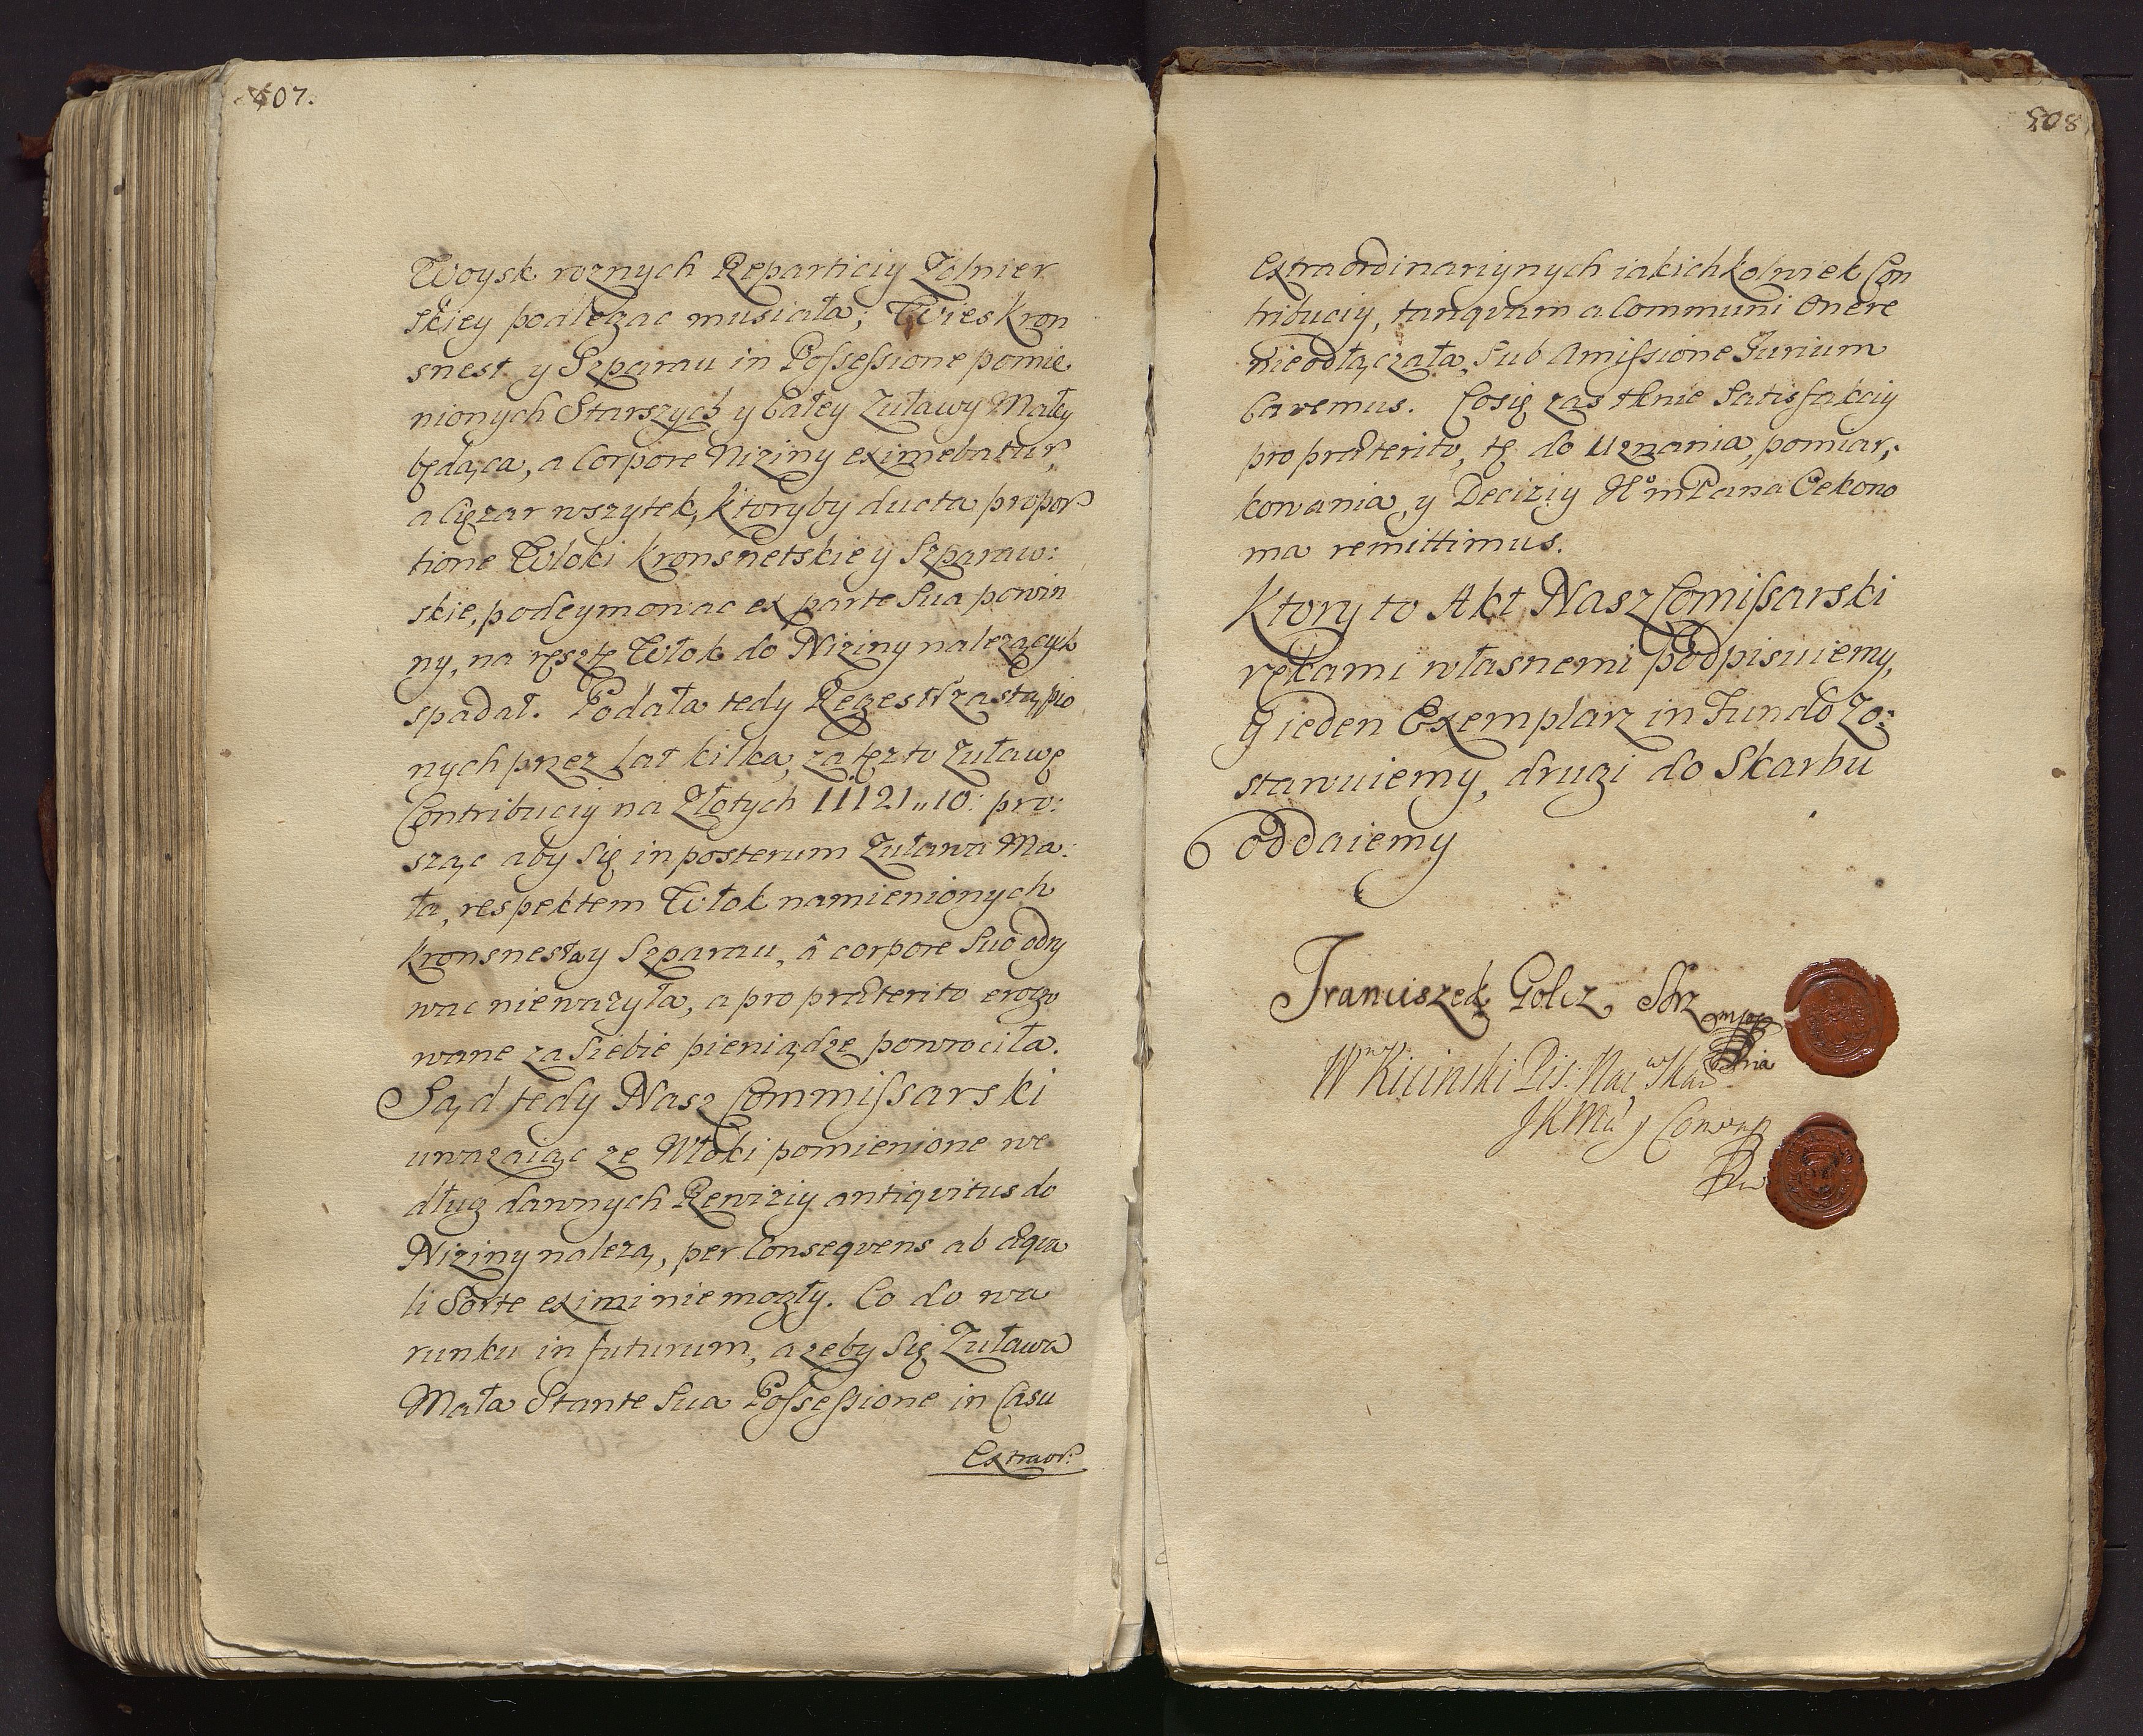 407.
Woysk roznych Reparticiy Zołnier
skiey podlegac musiała; Wies Kron
snest y Szparau in Possessione pomie
nionych Starszych y Całey Zuławy Małey
będąca, a Corpore Niziny eximebatur,
a Cięzar wszytek, ktoryby ducta propor
tione Włoki Kronsnetskie y Szparaw:
skie, podeymowac ex parte Sua powin
ny, na resztę Włok do Niziny nalezących
spadał. Podała tedy Regestr zastąpio
nych przez lat kilka, za tęz to Zuławę
Contribuciy na Złotych 11121„10: pro:
sząc aby się in posterum Zuława Ma:
ła, respektem Włok namienionych
Kronsnesta y Szparau, â corpore Suo odry
wac niewazyła, a pro præterito erogo
wane za Siebie pieniądze powrociła.
Sąd tedy Nasz Commissarski
uwazaiąc ze Włoki pomienione we
dług dawnych Rewiziy antiqvitus do
Niziny nalezą, per Consequens ab æqua
li Sorte eximi nie mogły. Co do wa
runku in futurum, azeby Się Zuława
Mała Stante Sua Possessione in Casu
Extraor:
508
extraordinariynych iakichkolwiek Con
tribuciy, tanqvam a Communi Onere
nieodłączała, Sub Amissione Jurium
Cavemus. Co się zas tknie Satisfakciy
pro præterito, tę do Uznania, pomiar,
kowania, y Deciziy Hºm Pana Oekono
ma remittimus.
Ktory to Akt Nasz Comissarski
rękami własnemi podpisuiemy,
y ieden Exemplarz in Fundo Zo:
stawuiemy, drugi do Skarbu
oddaiemy
Franciszek Golcz
Kicinski Pis:
JKMci y